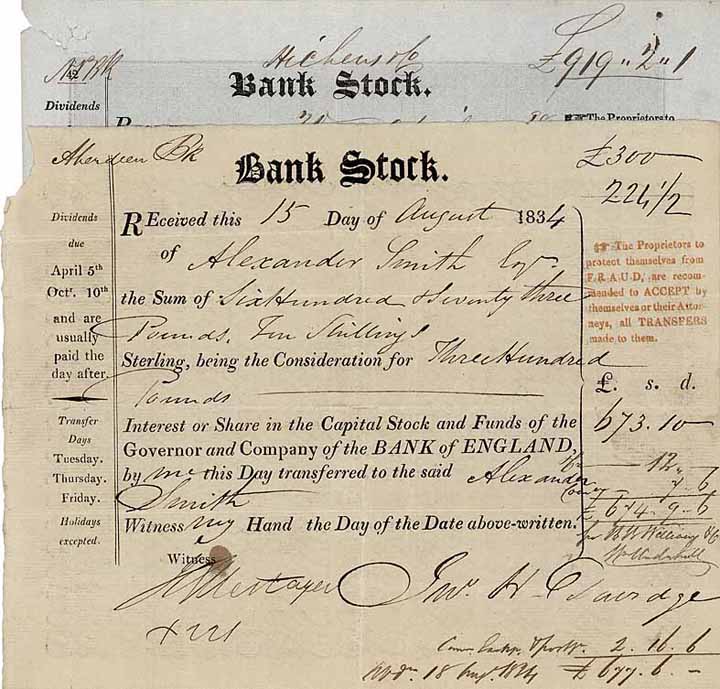 Hichens & Co
£919 " 2 " 1
Bank Stock.
Dividends
The Proprietors to
Aberdeen Bk
Bank Stock.
£300
224 1/2
Dividends
due
April 5th
Octr. 10th
and are
usually
paid the
day after.
Transfer
Days
Tuesday.
Thursday.
Friday.
Holidays
excepted.
REceived this 15 Day of August 1834
of Alexander Smith Esqr.
the Sum of Six Hundred & Seventy three
Pounds, Ten Shillings
Sterling, being the Consideration for Three Hundred
Pounds
Interest or Share in the Capital Stock and Funds of the
Governor and Company of the BANK of ENGLAND,
by me this Day transferred to the said Alexander
Smith
Witness my Hand the Day of the Date above-written.
Witness
The Proprietors to
protect themselves from
FRAUD, are recom-
mended to ACCEPT by
themselves or their Attor-
neys, all TRANSFERS
made to them.
£. s. d.
673.10 —
12 "
7. 6
£ 674. 9. 6
2. 16. 6
18 Augt. 1834 £ 677. 6. —